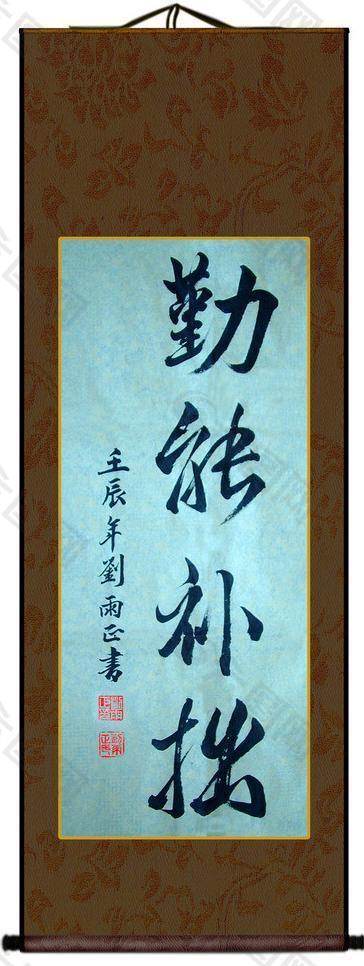 勤能补拙
壬辰年劉雨正書